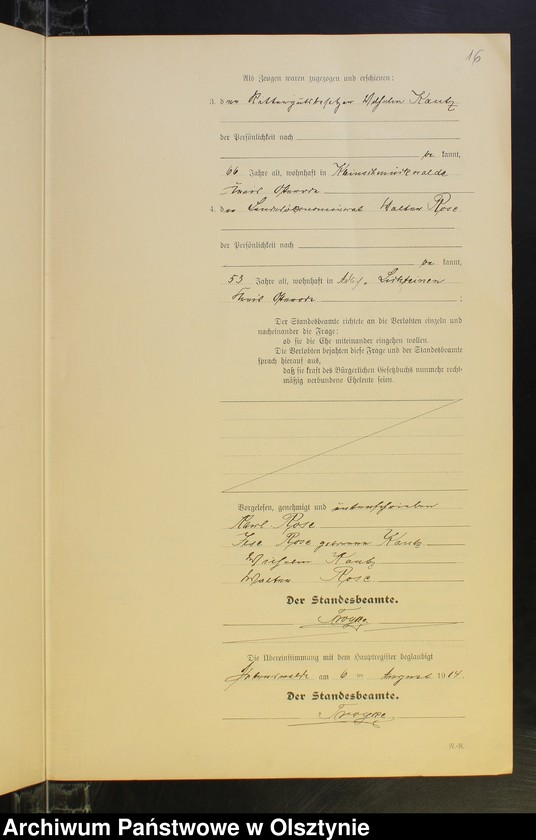 16
Als Zeugen waren zugezogen und erschienen:
3. der Rittergutsbesitzer Wilhelm Kautz
der Persönlichkeit nach
be kannt,
66 Jahre alt, wohnhaft in
Kreis Osterode
4. der Landesökonomierat Walter Rose
der Persönlichkeit nach
be kannt,
53 Jahre alt, wohnhaft in Adlig
Kreis Osterode ;
Der Standesbeamte richtete an die Verlobten einzeln und
nacheinander die Frage:
ob sie die Ehe miteinander eingehen wollen.
Die Verlobten bejahten diese Frage und der Standesbeamte
sprach hierauf aus,
daß sie kraft des Bürgerlichen Gesetzbuchs nunmehr recht-
mäßig verbundene Eheleute seien.
Vorgelesen, genehmigt und unterschrieben
Karl Rose
Rose geborene Kautz
Wilhelm Kautz
Walter Rose
Der Standesbeamte.
Die Übereinstimmung mit dem Hauptregister beglaubigt
am 6 ten August 1914.
Der Standesbeamte.
Archiwum Państwowe w Olsztynie